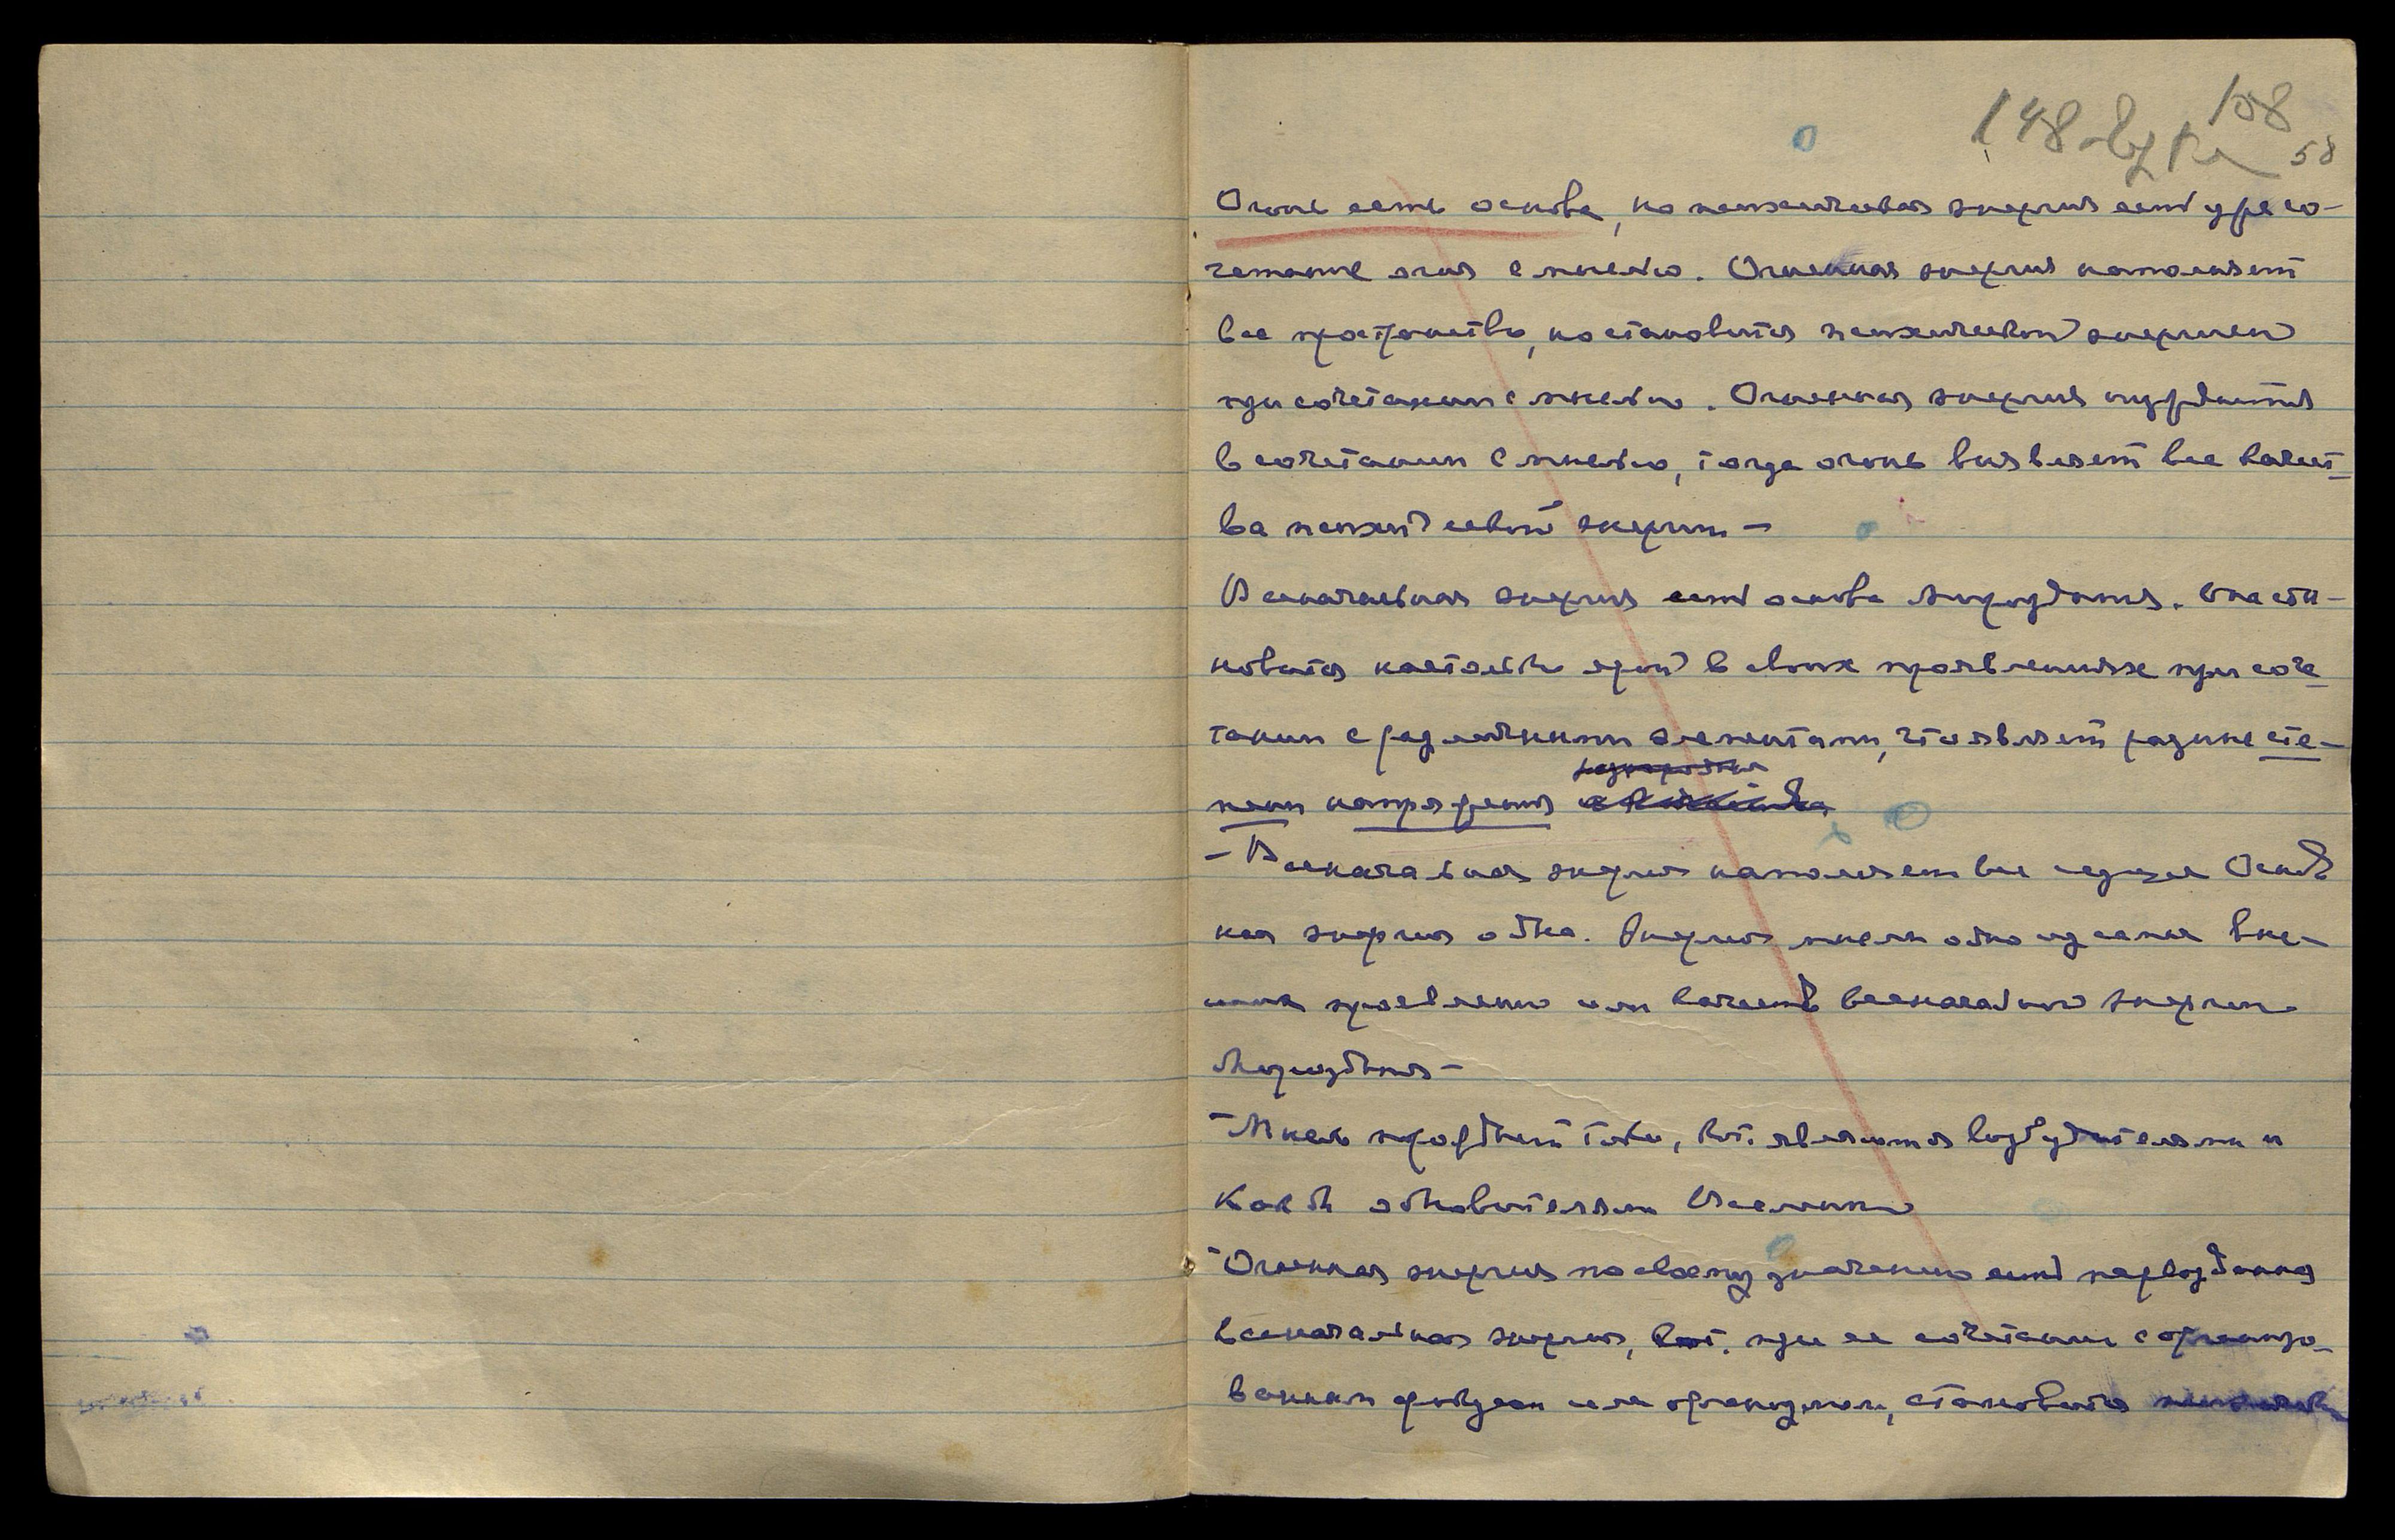 108
148
58
Огонь есть основа, но психическая энергия есть уже со-
четание огня с мыслью. Огненная энергия наполняет
все пространство, но становится психической энергией
при сочетании с мыслью. Огненная энергия нуждается
в сочетании с мыслью, тогда огонь выявляет все качест-
ва психической энергии –
Всеначальная энергия есть основа Мироздания. Она ста-
новится настолько ярой в своих проявлениях при соче-
тании с различными элементами, что являет разные сте-
пени напряжения
– Всеначальная энергия наполняет все сущее Основ
ная энергия одна. Энергия мысли одно из самых
проявлений или качеств всеначальной энергии
Мироздания –
– Мысль пространств токи, кот. являются возбудителями и
как бы обновителями Вселенной
– Огненная энергия по своему значению есть первозданная
всеначальная энергия, кот. при ее сочетании с организо-
ванным или организмом, становится